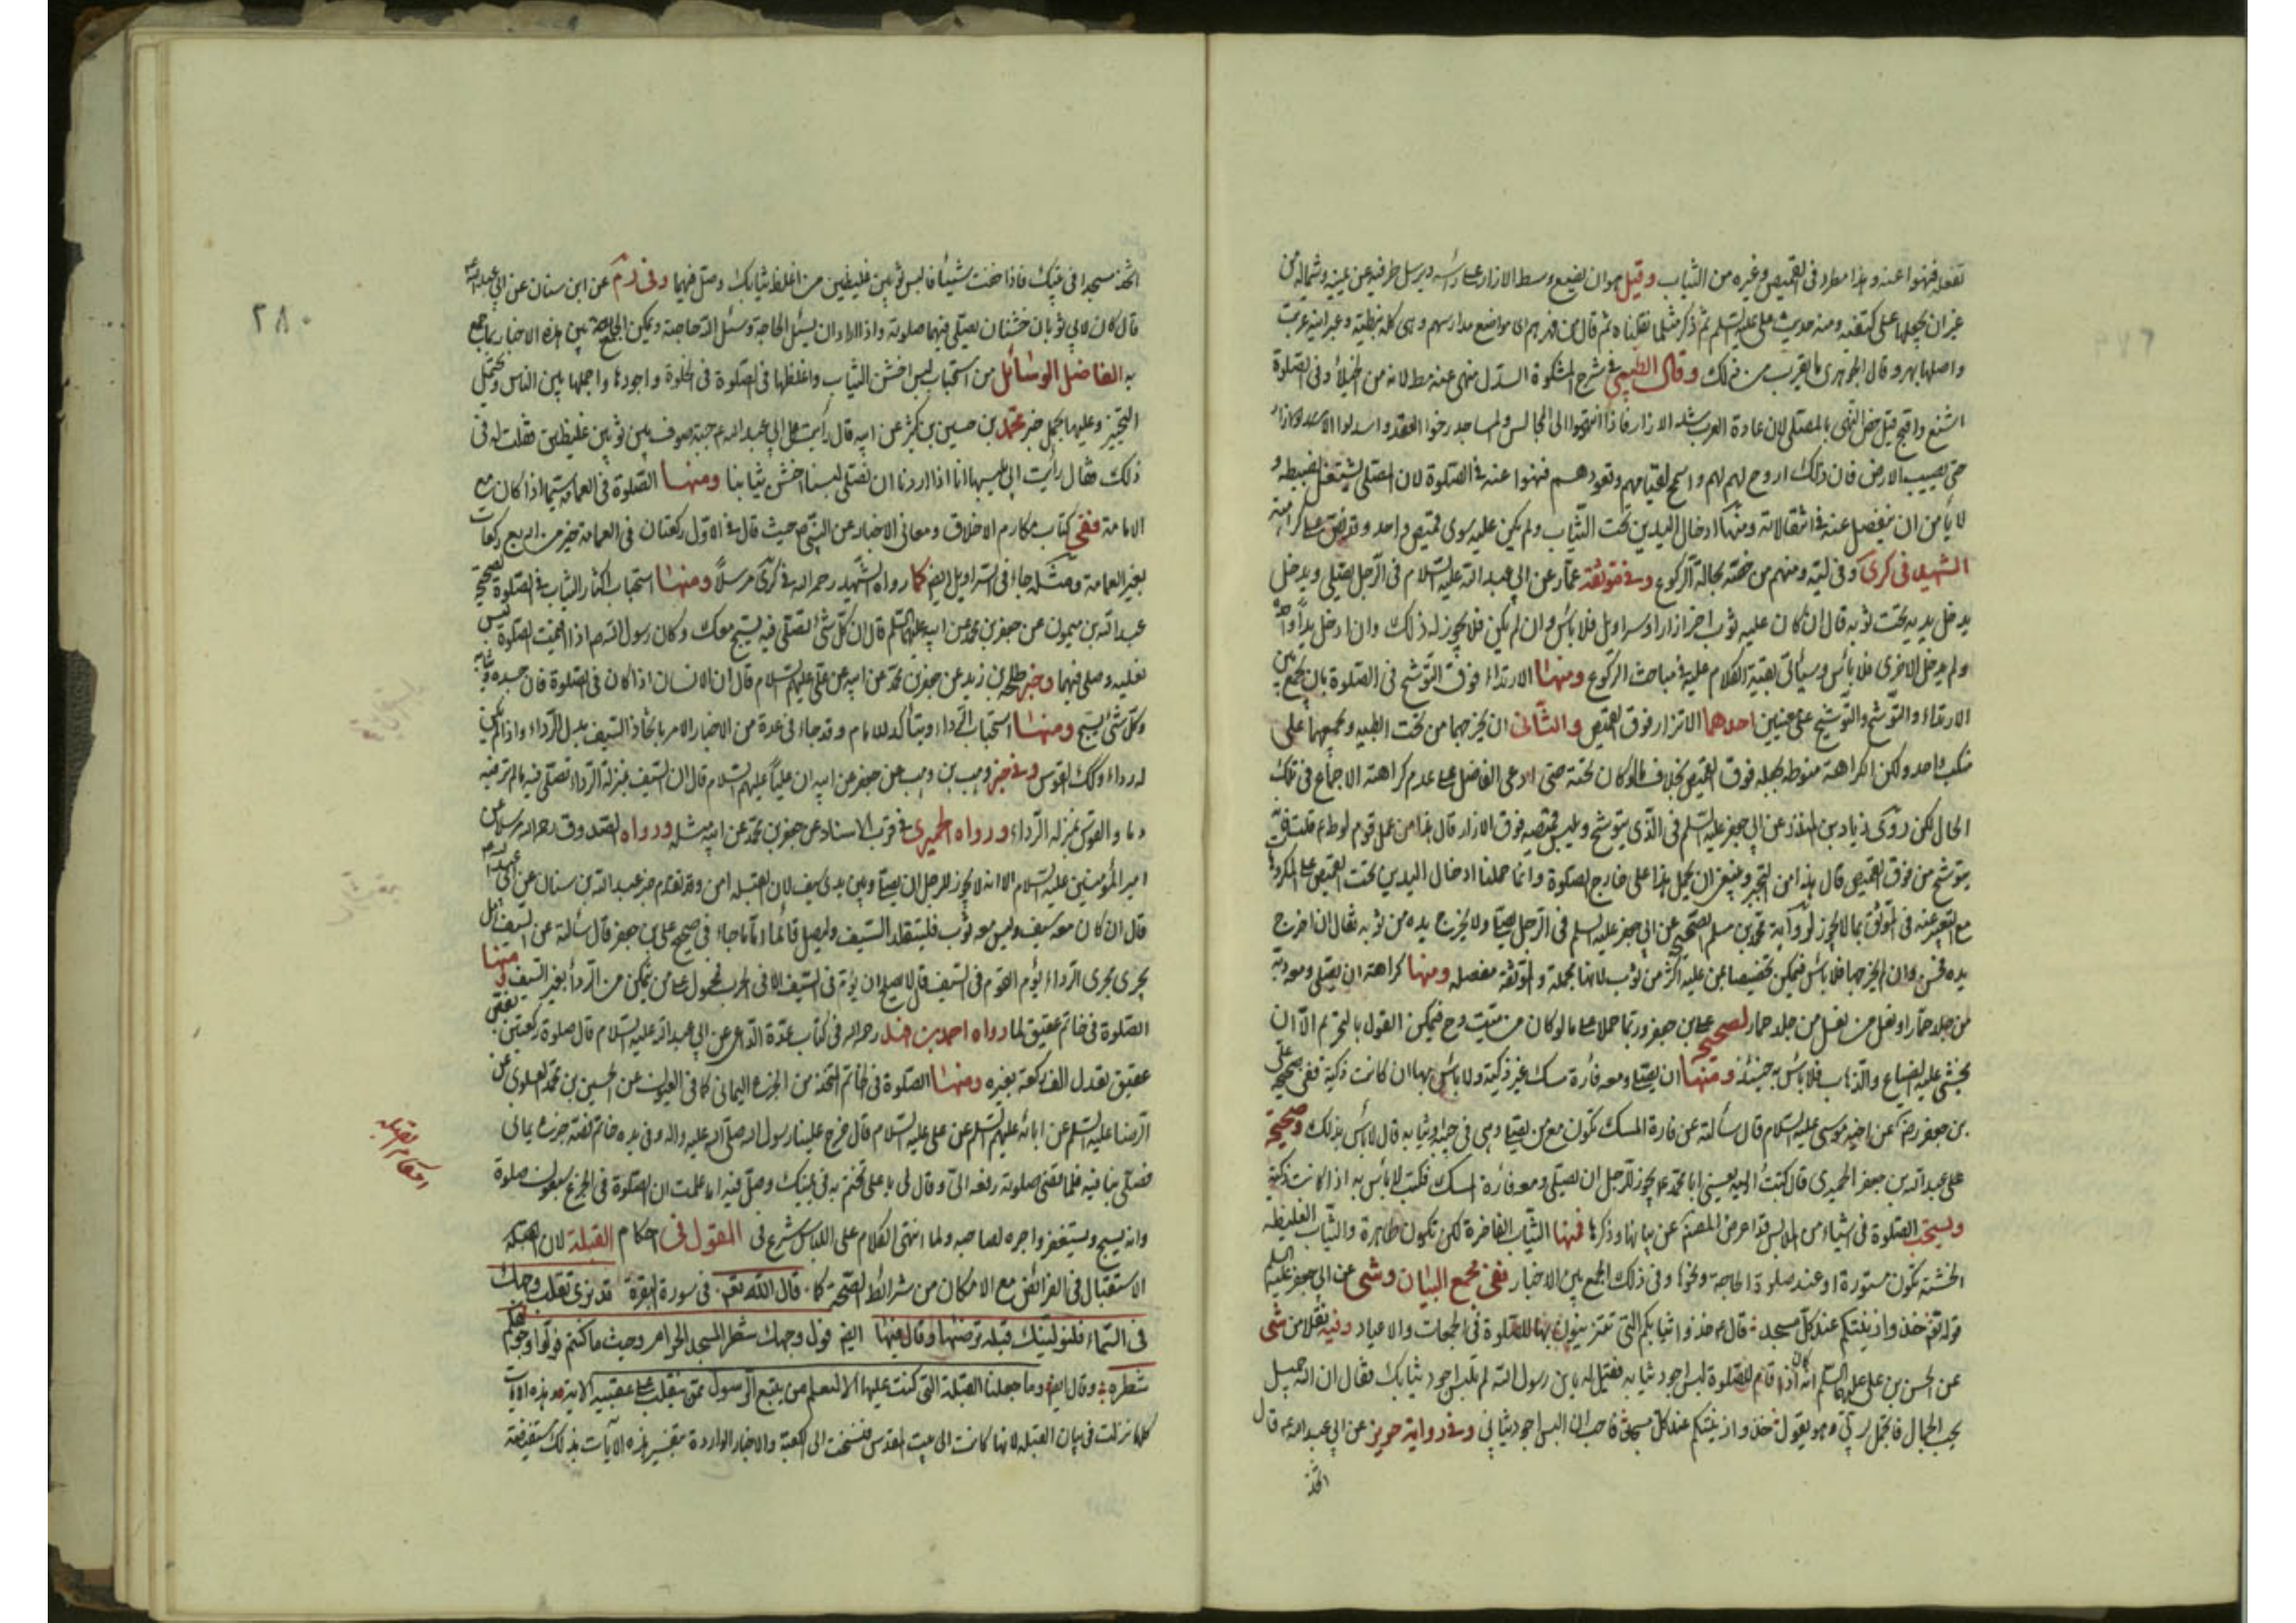 تفعله فنهوا عنه وهذا مطرد فی القمیص وغیره من الثیاب وقیل هو ان یضع وسط الازار علی راسه ویرسل طرفیه عن یمینه وشماله من
غیر ان یجعلها علی کتفیه ومنه حدیث علی علیه السلم ثم ذکر مثلما نقلناه ثم قال من فهرهم ای مواضع مدارسهم وهی کلمة نبطیة وعبرانیة عربت
واصلها بهر وقال الجوهری ما یقرب من ذلک وقال الطیبی فی شرح المشکوة السدل منهی عنه مط لانه من الخیلاء وفی الصلوة
اشنع واقبح قیل خص النهی بالمصلی لان عادة العرب شد الازار فاذا انتهوا الی المجالس والمساجد رخوا العقد واسدلوا الازار
حتی یصیب الارض فان ذلک اروح لهم واسمح لقیامهم وقعودهم فنهوا عنه فی الصلوة لان المصلی یشتغل بضبطه و
لا یأمن ان ینفصل عنه فی انتقالاته ومنها ادخال الیدین تحت الثیاب ولم یکن علیه سوی قمیص واحد وقد نص علی کراهته
الشهید فی کری وفی لیّه ومنهم من خصه بحالة الرکوع وفی موثقة عمار عن ابی عبد الله علیه السلام فی الرجل یصلی ویدخل
یدخل یدیه تحت ثوبه قال ان کان علیه ثوب اخر ازار او سراویل فلا بأس وان لم یکن فلا یجوز له ذلک وان ادخل یداً واحدة
ولم یدخل الاخری فلا بأس وسیأتی بقیة الکلام علیه فی مباحث الرکوع ومنها الارتداء فوق التوشح فی الصلوة بان یجمع بین
الارتداء والتوشح والتوشیح علی معنیین احدهما الاتزار فوق القمیص والثانی ان یخرجهما من تحت ابطیه ویجمعهما علی
منکب واحد ولکن الکراهة منوطة بجعله فوق القمیص بخلاف ما لو کان تحته حتی ادعی الفاضل علی عدم کراهته الاجماع فی تلک
الحال لکن روی زیاد بن المنذر عن ابی جعفر علیه السلم فی الذی یتوشح ویلبس قمیصه فوق الازار قال هذا من عمل قوم لوط ع قلت فانه
یتوشح من فوق القمیص قال هذا من التجبر وینبغی ان یحمل هذا علی خارج الصلوة وانما حملنا ادخال الیدین تحت القمیص علی المکروه
مع التعبیر عنه فی الموثق بما لا یجوز لروایة محمد بن مسلم الصحیح عن ابی جعفر علیه السلم فی الرجل یصلی ولا یخرج یده من ثوبه فقال ان اخرج
یده فحسن وان لم یخرجها فلا بأس فیمکن تخصیصا عن علیه اکثر من ثوب لانها مجملة والموثقة مفصله ومنها کراهة ان یصلی ومعه دبة
من جلد حمار او نعل من جلد حمار لصحیح علی بن جعفر وربما حملا علی ما لو کان من میت وح فیمکن القول بالتحریم الا ان
یخشی علیه الضیاع والذهاب فلا بأس به حینئذ ومنها ان یصلی ومعه فارة مسک غیر ذکیة ولا باس بها ان کانت ذکیة ففی صحیح علی
بن جعفر رضه عن اخیه موسی علیه السلام قال سألته عن فارة المسک تکون مع من یصلی وهی فی جیبه او ثیابه قال لا بأس بذلک وصحیح
علی عبد الله بن جعفر الحمیری قال کتبت الیه یعنی ابا محمد ع یجوز للرجل ان یصلی ومعه فارة مسک فکتب لا بأس به اذا کانت ذکیة
ویستحب الصلوة فی اشیاء من الملابس قد اعرض المصنف عن بیانها وذکرها فمنها الثیاب الفاخرة لکن تکون طاهرة والثیاب الغلیظة
الخشنة تکون مستورة او عند صلوة الحاجة ونحوها وفی ذلک الجمع بین الاخبار ففی مجمع البیان وشی عن ابی جعفر علیه السلم
قوله تع خذوا زینتکم عند کل مسجد قال ع خذوا ثیابکم التی تتزینون بها للصلوة فی الجمعات والاعیاد وفیه نقلا من شی
عن الحسن بن علی علیهما السلم انه کان اذا قام للصلوة لبس اجود ثیابه فقیل له یابن رسول الله لم تلبس اجود ثیابک فقال ان الله جمیل
یحب الجمال فاتجمل لربی وهو یقول خذوا زینتکم عند کل مسجد فاحب ان البس اجود ثیابی وفی روایة حریز عن ابی عبد الله ع قال
اتخذ
٢٨٠
اتخذ مسجدا فی بیتک فاذا خفت شیئا فالبس ثوبین غلیظین من اغلظ ثیابک وصل فیهما وفی عن ابن سنان عن ابی عبد الله ع
قال کان لابی ثوبان خشنان یصلی فیهما صلوته واذا اراد ان یسئل الحاجة وسئل الله حاجته ویمکن الجمع بین هذه الاخبار بما جمع
به الفاضل الوسائل من استحباب لبس اخشن الثیاب واغلظها فی الصلوة فی الخلوة واجودها واجملها بین الناس ویحتمل
التخییر وعلیهما یحمل خبر محمد بن حسین بن کثیر عن ابیه قال رأیت علی ابی عبد الله ع جبة صوف بین ثوبین غلیظین فقلت له فی
ذلک فقال رأیت ابی یلبسها انا اذا اردنا ان نصلی لبسنا اخشن ثیابنا ومنها الصلوة فی العمامة سیما اذا کان مع
الامامة ففی کتاب مکارم الاخلاق ومعانی الاخبار عن النبی ص حیث قال فی الاول رکعتان فی العمامة خیر من اربع رکعات
بغیر العمامة ومثله جاء فی السراویل ایض کما رواه الشهید رحمه الله فی کری مرسلاً ومنها استحباب اکثار الثیاب فی الصلوة لصحیح
عبد الله بن میمون عن جعفر بن محمد عن ابیه علیهما السلم قال ان کل شئ تصلی فیه یسبح معک وکان رسول الله ص اذا اقیمت الصلوة لبس
نعلیه وصلی فیهما وخبر طلحة بن زید عن جعفر بن محمد عن ابیه عن علی علیهم السلام قال ان الانسان اذا کان فی الصلوة فان جسده وثیابه
وکل شئ یسبح ومنها استحباب الرداء ویتأکد للامام وقد جاء فی عدة من الاخبار الامر باتخاذ السیف بدل الرداء واذا لم یکن
له رداء وکک القوس وفی خبر وهب بن وهب عن جعفر عن ابیه ان علیاً علیهم السلام قال ان السیف بمنزلة الرداء تصلی فیه ما لم تر فیه
دما والقوس بمنزلة الرداء ورواه الحمیری فی قرب الاسناد عن جعفر بن محمد عن ابیه مثله ورواه الصدوق رحمه الله مرسلا عن
امیر المؤمنین علیه السلام الا انه لا یجوز للرجل ان یصلی وبین یدیه سیف لان القبلة امن وقد تقدم خبر عبد الله بن سنان عن ابی عبد الله ع
قال ان کان معه سیف ولیس معه ثوب فلیتقلد السیف ولیصل قائما واما ما جاء فی صحیح علی بن جعفر قال سألته عن السیف هل
یجری مجری الرداء یؤم القوم فی السیف قال لا یصلح ان یؤم فی السیف الا فی الحرب فمحمول علی من یتمکن من الرداء بغیر السیف ومنها
الصلوة فی خاتم عقیق لما رواه احمد بن فهد رحمه الله فی کتاب عدة الداعی عن ابی عبد الله علیه السلام قال صلوة رکعتین بفص
عقیق تعدل الف رکعة بغیره ومنها الصلوة فی خاتم اتخذ من الجزع الیمانی کما فی العیون عن الحسین بن محمد العلوی عن
الرضا علیه السلم عن ابائه علیهم السلم عن علی علیه السلام قال خرج علینا رسول الله صلی الله علیه واله وفی یده خاتم فصه جزع یمانی
فصلی بنا فیه فلما قضی صلوته دفعه الی وقال لی یا علی تختم به فی یمینک وصل فیه اما علمت ان الصلوة فی الجزع سبعون صلوة
وانه یسبح ویستغفر واجره لصاحبه ولما انتهی الکلام علی اللباس شرع فی المقول فی احکام القبلة لان
الاستقبال فی الفرائض مع الامکان من شرائط الصحة کا قال الله تع فی سورة البقرة قد نری تقلب وجهک
فی السماء فلنولینک قبلة ترضیها وقال فیها ایض فول وجهک شطر المسجد الحرام وحیث ما کنتم فولوا وجوهکم
شطره وقال ایض وما جعلنا القبلة التی کنت علیها الا لنعلم من یتبع الرسول ممن ینقلب علی عقبیه الایة وهذه الایات
کلها نزلت فی بیان القبلة لانها کانت الی بیت المقدس فنسخت الی الکعبة والاخبار الواردة بتفسیر هذه الآیات بذلک مستفیضة